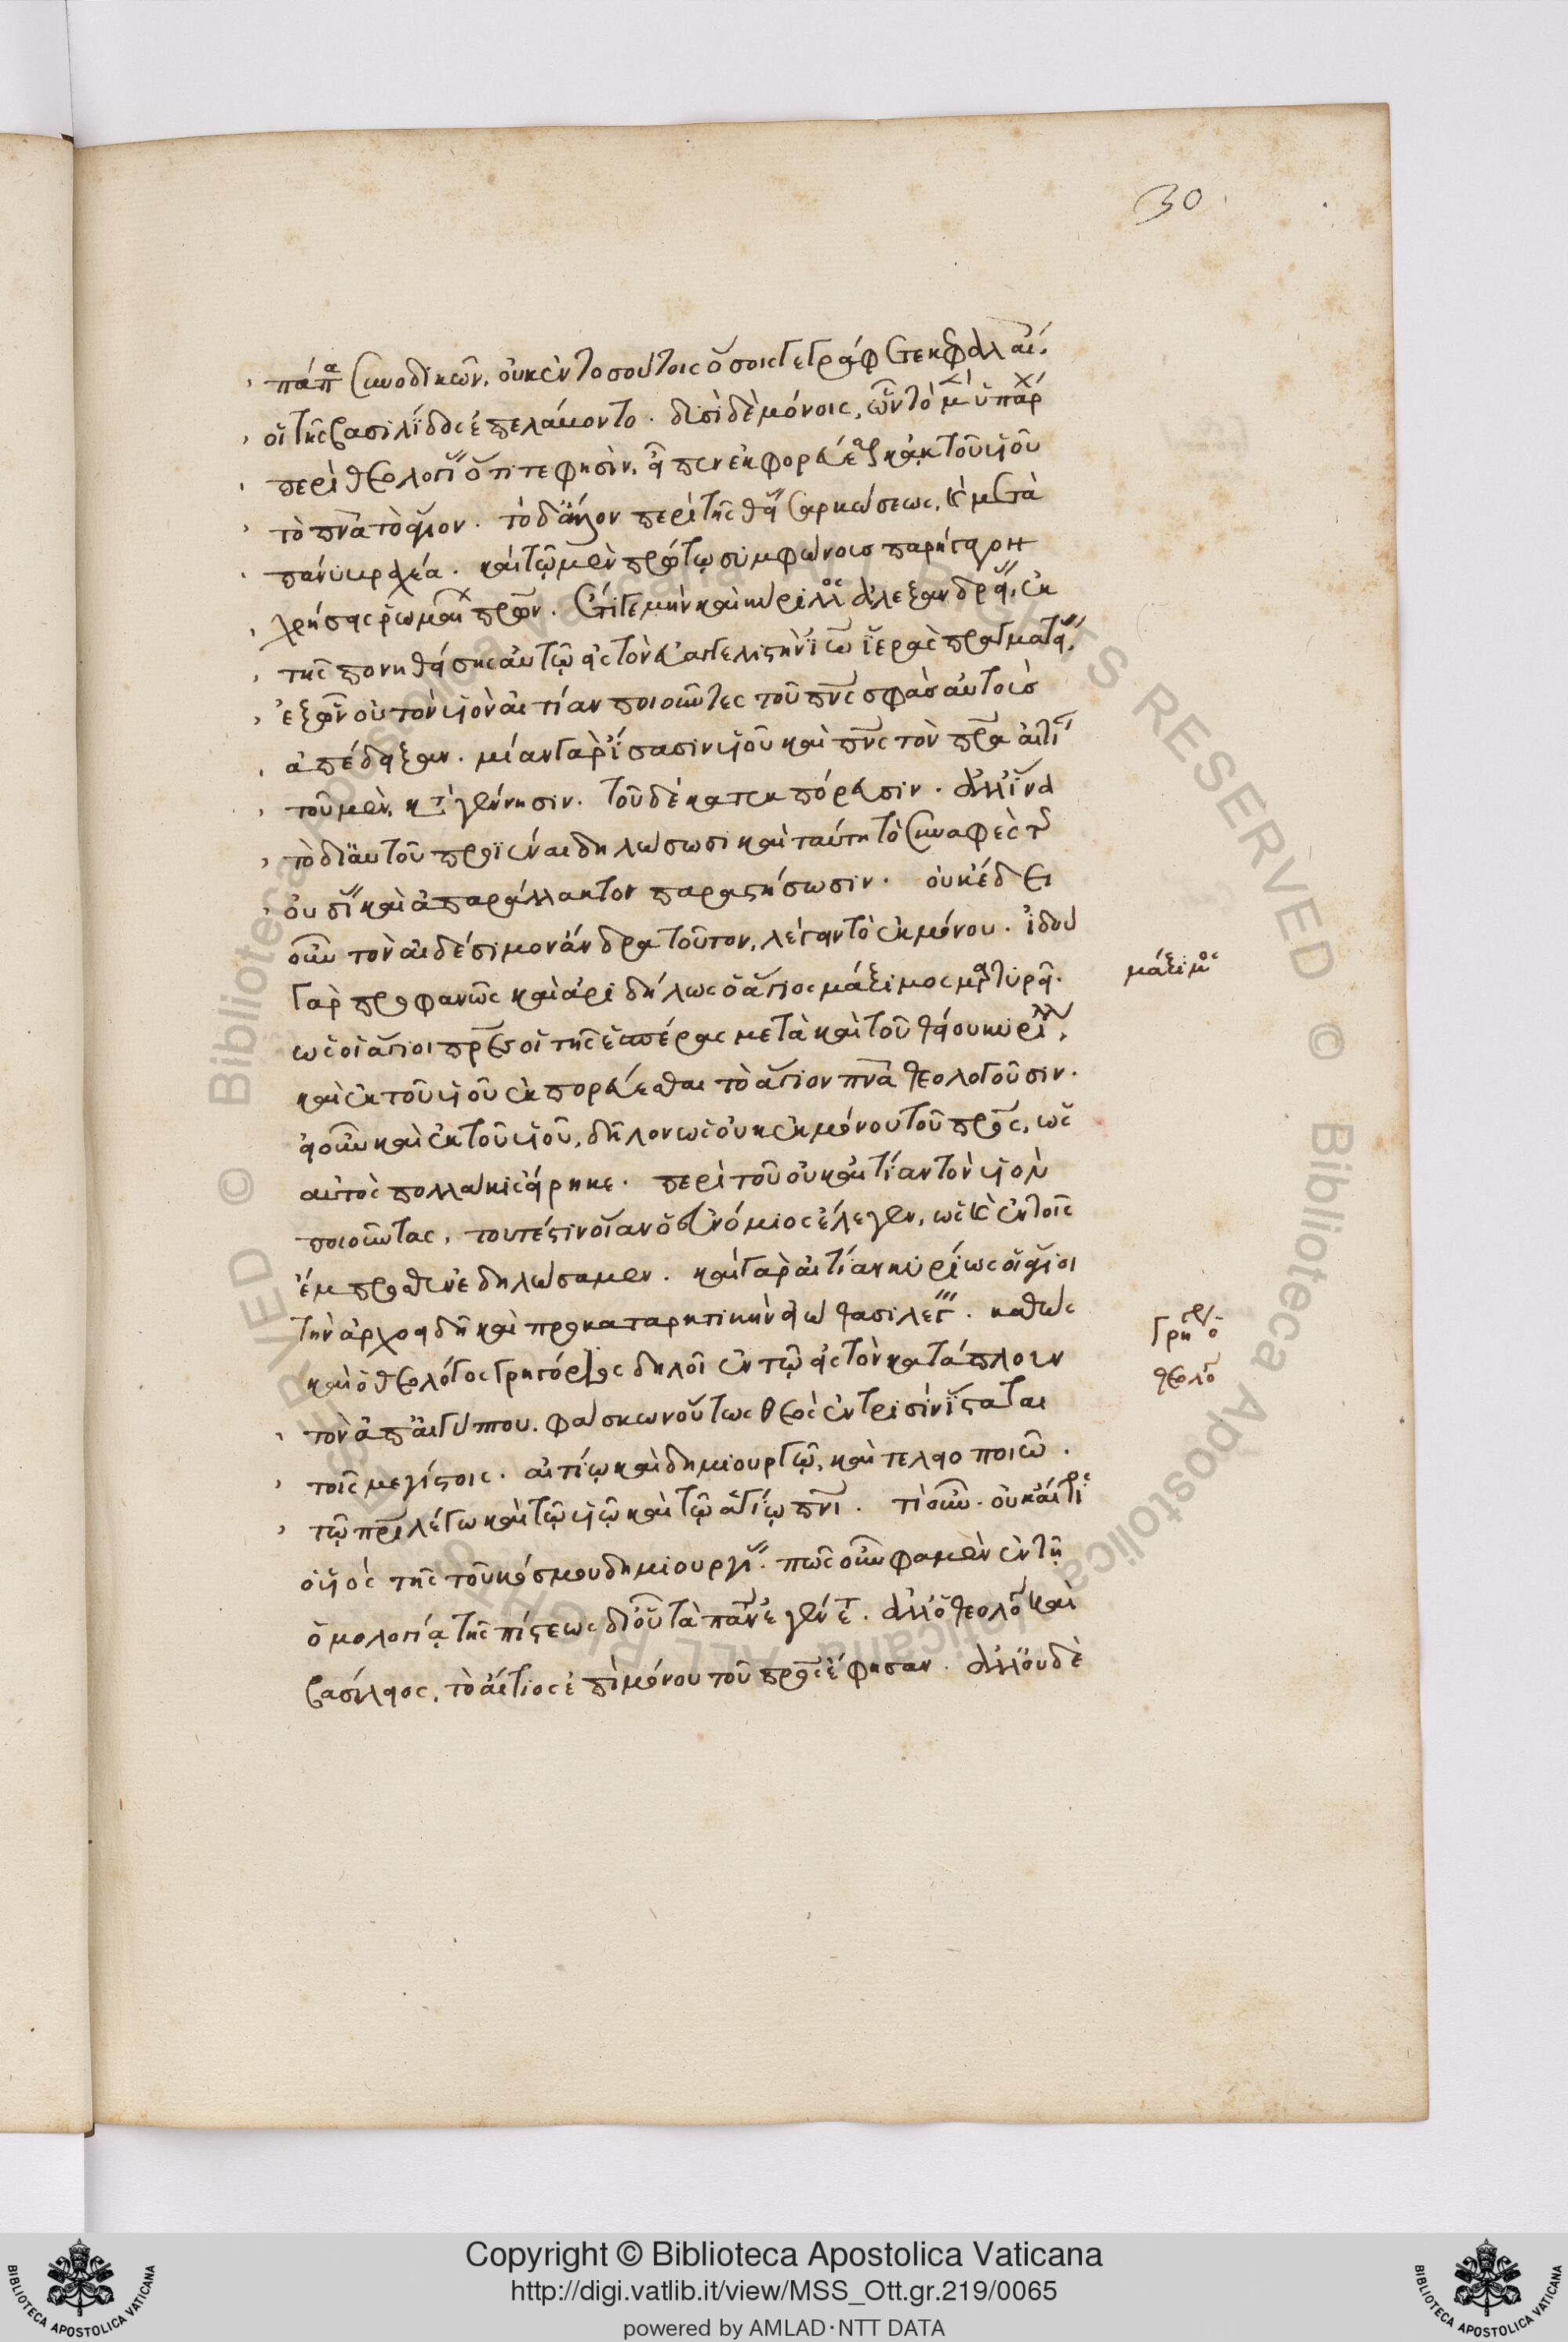 30
πάπα συνοδικῶν, οὐκ ἐν τοσούτοις ὅσοις γεγράφατε κεφαλαί,
οἱ τῆς βασιλίδος ἐπελάβοντο. δυσὶ δὲ μόνοις, ὧν τὸ μὲν ὑπάρχ
περὶ θεολογί ὅτι τε φησὶν, εἶπεν ἐκπορεύεσθ κἀκ τοῦ υἱοῦ
τὸ πνα τὸ ἅγιον. τὸ δ' ἄλλον περὶ τῆς θεί σαρκώσεως, καὶ μετὰ
καὶ τῷ μὲν πρώτῳ συμφώνους παρήγαγον
χρήσεις ῥωμαι πρων. ἔτι γε μὴν καὶ κυρίλλος ἀλεξανδρεί, ἐκ
τῆς πονηθείσης αὐτῷ εἰς τὸν εὐαγγελιστὴν ἰω ἱερᾶς πραγματεί,
ἐξ ὧν οὐ τὸν υἱὸν αἰτίαν ποιοῦντες τοῦ πνς σφὰς αὐτοὺς
ἀπέδειξαν. μίαν γὰρ ἴσασιν υἱοῦ καὶ πνς τὸν πρα αἰτί
τοῦ μὲν, κτ γέννησιν. τοῦ δὲ κατ' ἐκπόρευσιν. ἀλλ' ἵνα
τὸ δι' αὐτοῦ προϊέναι δηλώσωσι καὶ ταύτη τὸ συναφὲς τ
οὐσί καὶ ἀπαράλλακτον παραστήσωσιν. οὐκ ἔδει
οὖν τὸν αἰδέσιμον ἄνδρα τοῦτον, λέγειν τὸ ἐκ μόνου. ἰδοὺ
γὰρ προφανῶς καὶ ἀριδήλως ὁ ἅγιος μάξιμος μαρτυρεῖ.
ὡς οἱ ἅγιοι πρες οἱ τῆς ἑσπέρας μετὰ καὶ τοῦ θείου κυρίλλ,
καὶ ἐκ τοῦ υἱοῦ ἐκπορεύεσθαι τὸ ἅγιον πνα θεολογοῦσιν.
εἰ οὖν καὶ ἐκ τοῦ υἱοῦ, δῆλον ὡς οὐκ ἐκ μόνου τοῦ πρς, ὡς
αὐτὸς πολλάκις εἴρηκε. περὶ τοῦ οὐκ αἰτίαν τὸν υἱὸν
ποιοῦντας, τουτέστιν οἵαν ὁ εὐνόμιος ἔλεγεν, ὡς καὶ ἐν τοῖς
ἔμπροσθεν ἐδηλώσαμεν. καὶ γὰρ αἰτίαν κυρίως οἱ ἅγιοι
τὴν ἀρχοειδῆ καὶ προκαταρκτικὴν εἰώθασι λέγ. καθὼς
καὶ ὁ θεολόγος γρηγόριος δηλοῖ ἐν τῷ εἰς τὸν κατάπλουν
τὸν ἀπ' αἰγύπτου. φάσκων οὕτως θεὸς ἐν τρισὶν ἵσταται
τοῖς μεγίστοις. αἰτίῳ καὶ δημιουργῷ, καὶ τελειοποιῶ.
τῷ πρι λέγω καὶ τῷ υἱῷ καὶ τῷ ἁγίῳ πνι. τὶ οὖν. οὐκ αἴτιος
ὁ υἱὸς τῆς τοῦ κόσμου δημιουργί. πῶς οὖν φαμὲν ἐν τῇ
ὁμολογίᾳ τῆς πίστεως δι' οὗ τὰ πάντ ἐγένετ. ἀλλ' ὁ θεολό καὶ
βασίλειος, τὸ αἴτιος ἐπὶ μόνου τοῦ πρς ἔφησαν. ἀλλ' οὐδὲ
μάξιμος
Γρηγό ὁ
θεολό
Copyright © Biblioteca Apostolica Vaticana
http://digi.vatlib.it/view/MSS_Ott.gr.219/0065
powered by AMLAD·NTT DATA